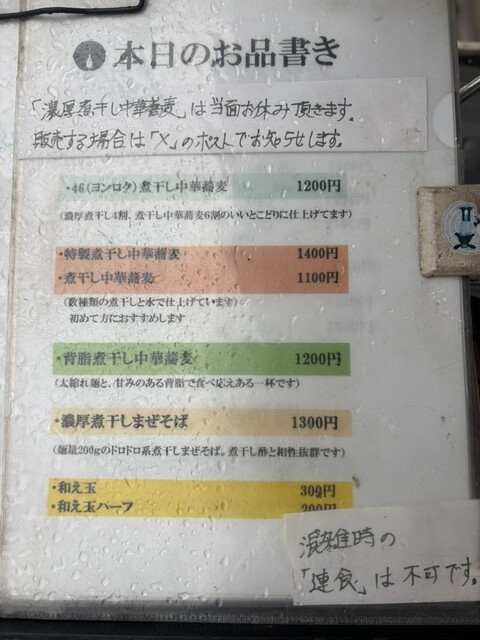 本日のお品書き
「濃厚煮干し中華蕎麦」は当面お休み頂きます。
販売する場合は「X」のポストでお知らせします。
・46(ヨンロク)煮干し中華蕎麦 1200円
(濃厚煮干し4割、煮干し中華蕎麦6割のいいとこどりに仕上げてます)
・特製煮干し中華蕎麦 1400円
・煮干し中華蕎麦 1100円
(数種類の煮干しと水で仕上げています)
初めて方におすすめします
・背脂煮干し中華蕎麦 1200円
(太縮れ麺と、甘みのある背脂で食べ応えある一杯です)
・濃厚煮干しまぜそば 1300円
(麺量200gのドロドロ系煮干しまぜそば。煮干し酢と相性抜群です)
・和え玉 300円
・和え玉ハーフ 200円
混雑時の
「連食」は不可です。